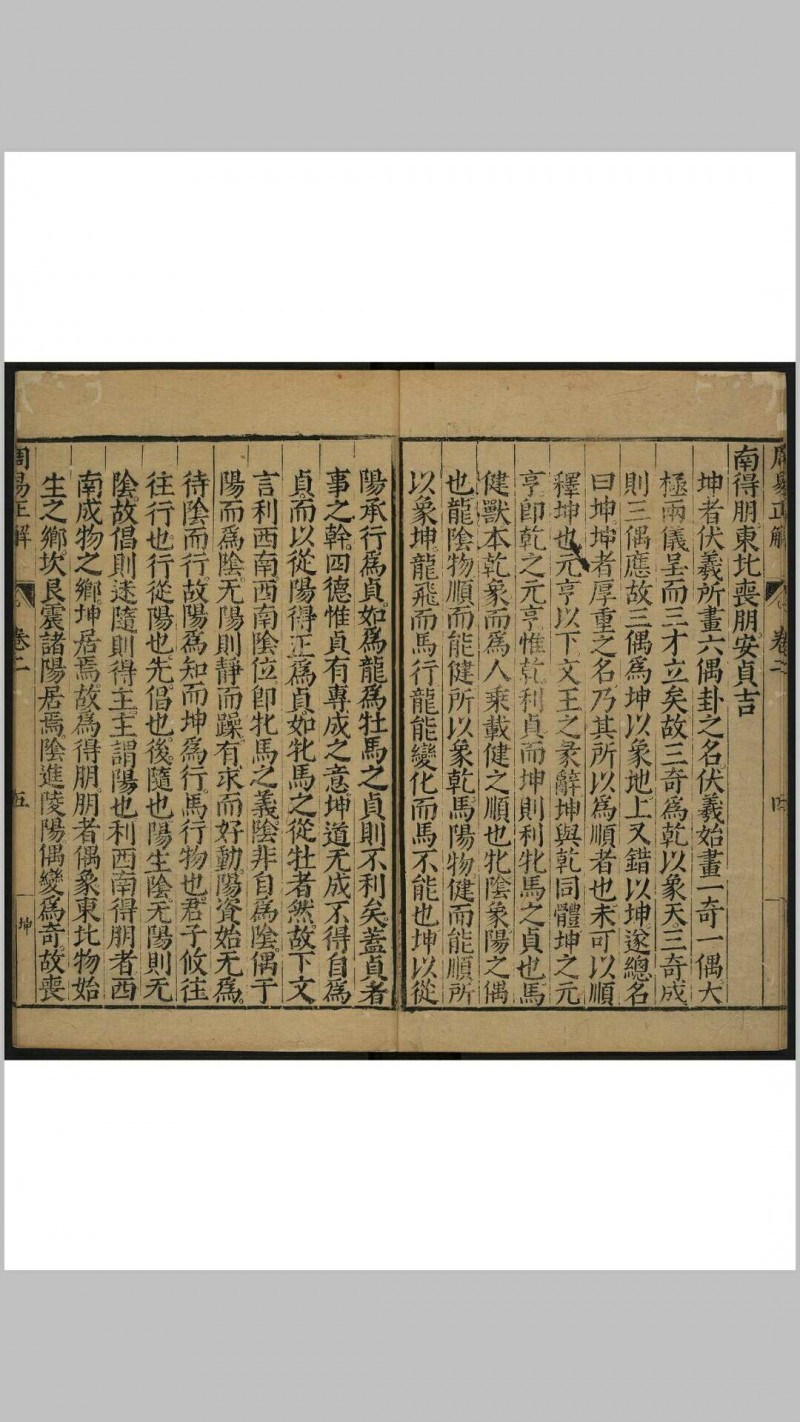 周易正解 卷二 四
南得朋東北喪朋安貞吉
坤者伏羲所畫六偶卦之名伏羲始畫一奇一偶大
極兩儀呈而三才立矣故三奇爲乾以象天三奇成
則三偶應故三偶爲坤以象地上又錯以坤遂總名
曰坤坤者厚重之名乃其所以爲順者也未可以順
釋坤也元亨以下文王之彖辭坤與乾同體坤之元
亨卽乾之元亨惟乾利貞而坤則利牝馬之貞也馬
健獸本乾象而爲人乘載健之順也牝陰象陽之偶
也龍陰物順而能健所以象乾馬陽物健而能順所
以象坤龍飛而馬行龍能變化而馬不能也坤以從
陽承行爲貞如爲龍爲牡馬之貞則不利矣蓋貞者
事之幹四德惟貞有專成之意坤道无成不得自爲
貞而以從陽得正爲貞如牝馬之從牡者然故下文
言利西南西南陰位卽牝馬之義陰非自爲陰偶于
陽而爲陰无陽則靜而躁有求而好動陽資始无爲
待陰而行故陽爲知而坤爲行馬行物也君子攸往
往行也行從陽也先倡也後隨也陽生陰无陽則无
陰故倡則迷隨則得主主謂陽也利西南得朋者西
南成物之鄉坤居焉故爲得朋朋者偶象東北物始
生之鄉坎艮震諸陽居焉陰進陵陽偶變爲奇故喪
周易正解 卷二 五 坤